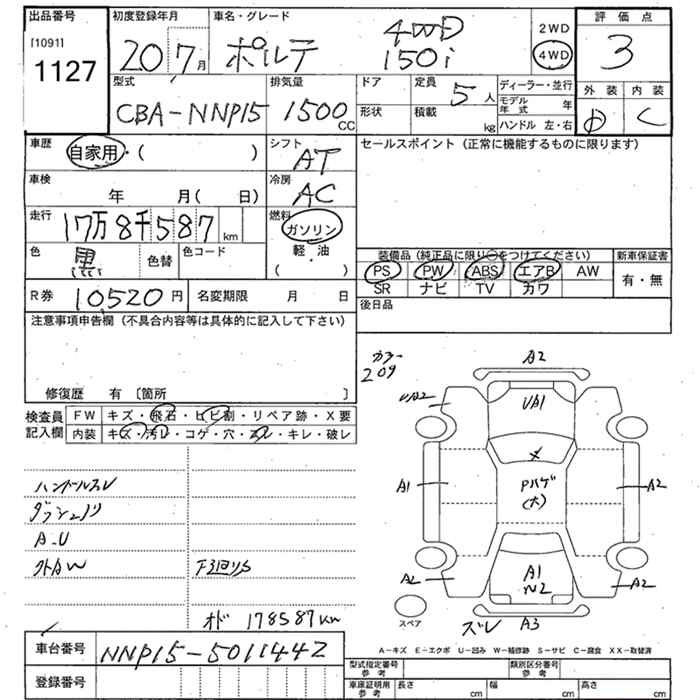 出品番号
[1091]
1127
初度登録年月
20 7月
車名・グレード
ポルテ 4WD 150i
2WD
4WD
評価点
3
外装 内装
D C
型式
CBA-NNP15
排気量
1500 CC
ドア
形状
定員
5人
積載
kg
ディーラー・並行
モデル年式 年
ハンドル 左・右
車歴
自家用・( )
シフト
AT
セールスポイント (正常に機能するものに限ります)
車検
年 月( 日)
冷房
AC
走行
17万8千587 km
燃料
ガソリン
軽・油
( )
色
黒
色替
色コード
装備品 (純正品に限り○をつけてください)
新車保証書
PS PW ABS エアB AW
SR ナビ TV カワ
有・無
R券 10520円
名変期限 月 日
後日品
注意事項申告欄 (不具合内容等は具体的に記入して下さい)
修復歴 有 [箇所 ]
検査員記入欄
FW キズ・飛石・ヒビ割・リペア跡・X要
内装 キズ・汚レ・コゲ・穴・スレ・キレ・破レ
カラー
209
A2
UA2
UA1
X
A1
Pハゲ
(大)
A2
A2
A1
N2
A2
スペア
ズレ
A3
ハンドルスレ
ダッシュノリ
A・U
外AW
下廻りS
オド 178587km
A-キズ E-エクボ U-凹み W-補修跡 S-サビ C-腐食 XX-取替済
車台番号 NNP15-5011442
登録番号
型式指定番号 参考
類別区分番号 参考
車庫証明用 参考
長さ cm
幅 cm
高さ cm